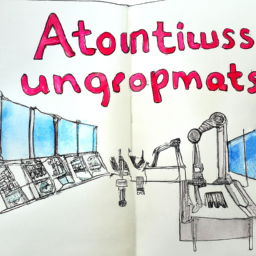 Atointiuss
ungropmats